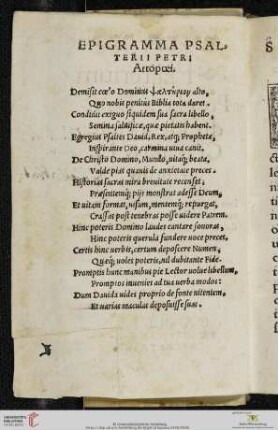 EPIGRAMMA PSAL-
TERII PETRI
Artopœi.
Demisit cœlo Dominus ψαλτήριον alto,
Quo nobis penitus Biblia tota daret.
Conditus exiguo siquidem sua sacra libello,
Semina saluifica, quæ pietatis habent.
Egregius Psaltes Dauid, Rex, atq; Propheta,
Inspirante Deo, carmina uiua canit.
De Christo Domino, Mundo, uitaq; beata,
Valde pias quauis de anxietate preces.
Historias sacras mira breuitate recenset:
Præsentemq; pijs monstrat adesse Deum,
Et uitam format, uisum, mentemq; repurgat,
Crassas post tenebras posse uidere Patrem.
Hinc poteris Domino laudes cantare sonoras,
Hinc poteris querula fundere uoce preces,
Certis hinc uerbis, certum deposcere Numen,
Quæq; uoles poteris, nil dubitante Fide.
Promptis hunc manibus pie Lector uolue libellum,
Promptos inuenies ad tua uerba modos:
Dum Dauida uides proprio de fonte nitentem,
Et uarias maculas deposuisse suas.